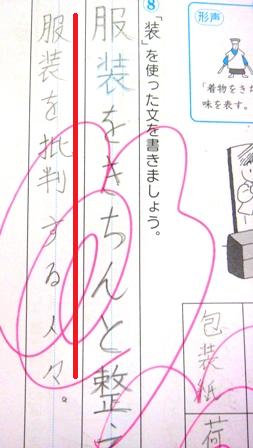 形声
「着物をき
味を表す。
8 「装」を使った文を書きましょう。
包装紙
荷
服装をきちんと整
服装を批判する人々。